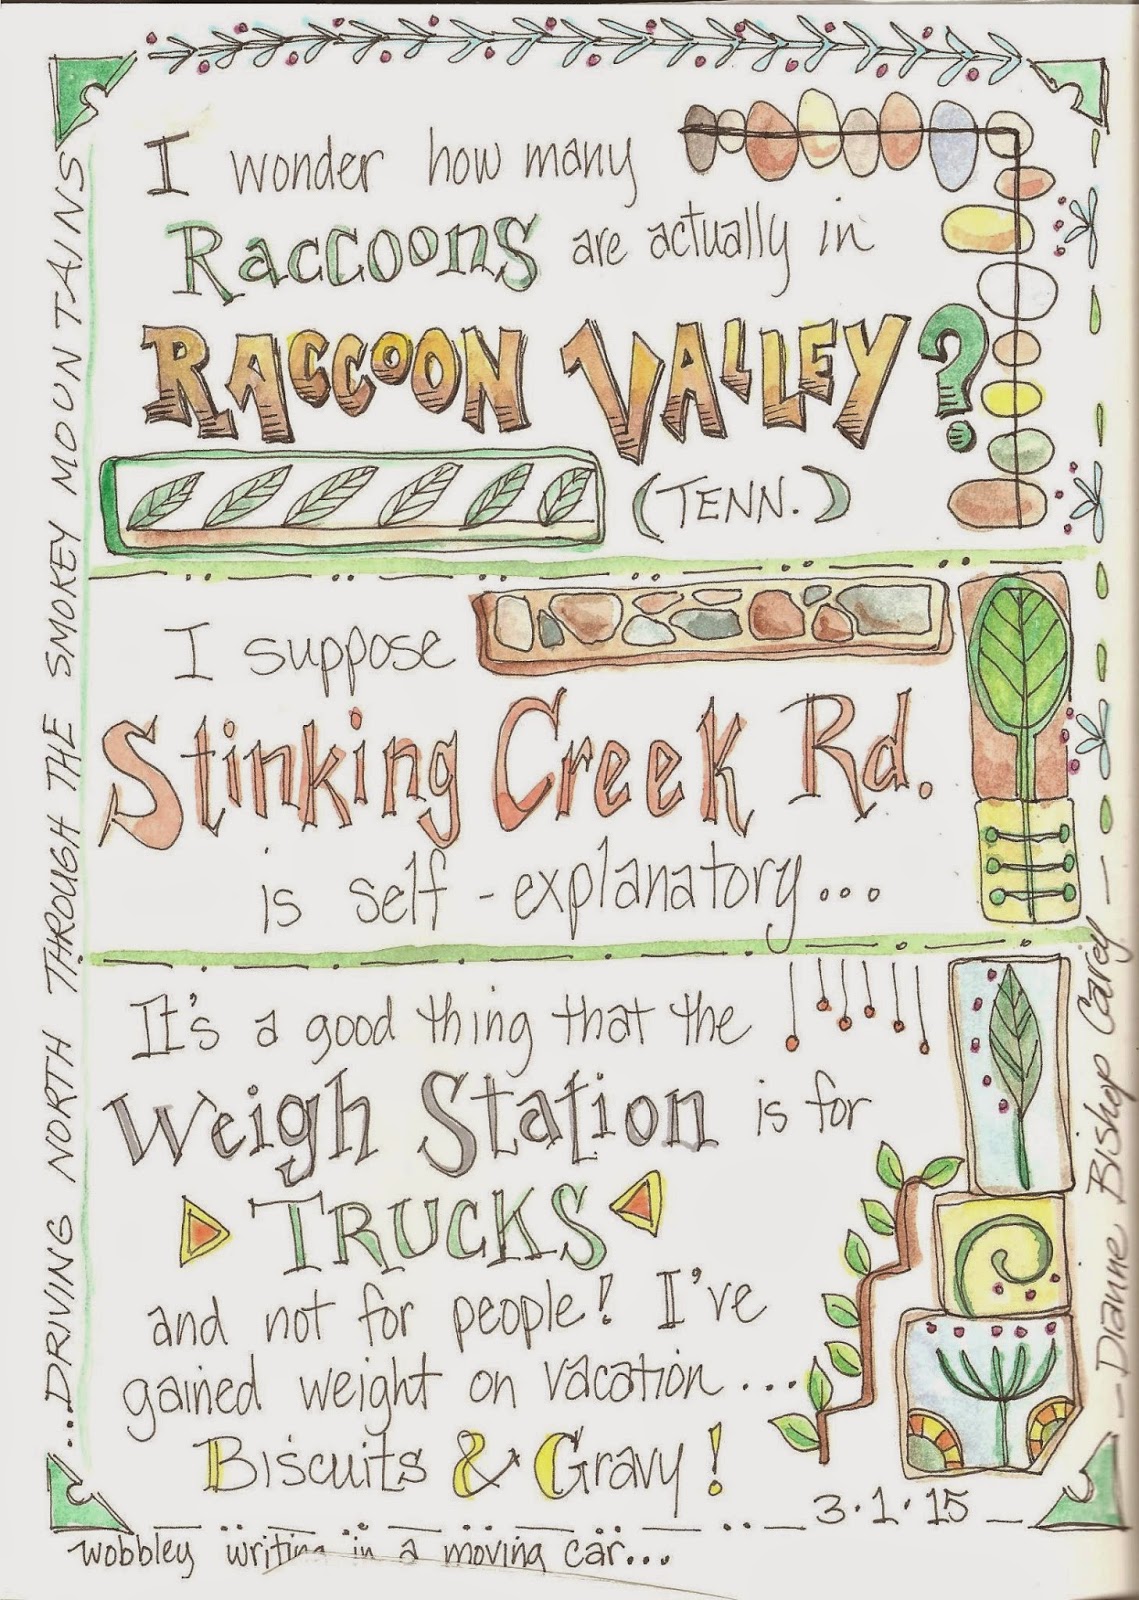 I wonder how many
Raccoons are actually in
RACCOON VALLEY?
(TENN.)
I suppose
Stinking Creek Rd.
is self-explanatory...
It's a good thing that the
Weigh Station is for
TRUCKS
and not for people! I've
gained weight on vacation...
Biscuits & Gravy!
3.1.15
wobbley writing in a moving car...
...DRIVING NORTH THROUGH THE SMOKEY MOUNTAINS
—Dianne Bishop Cardy—